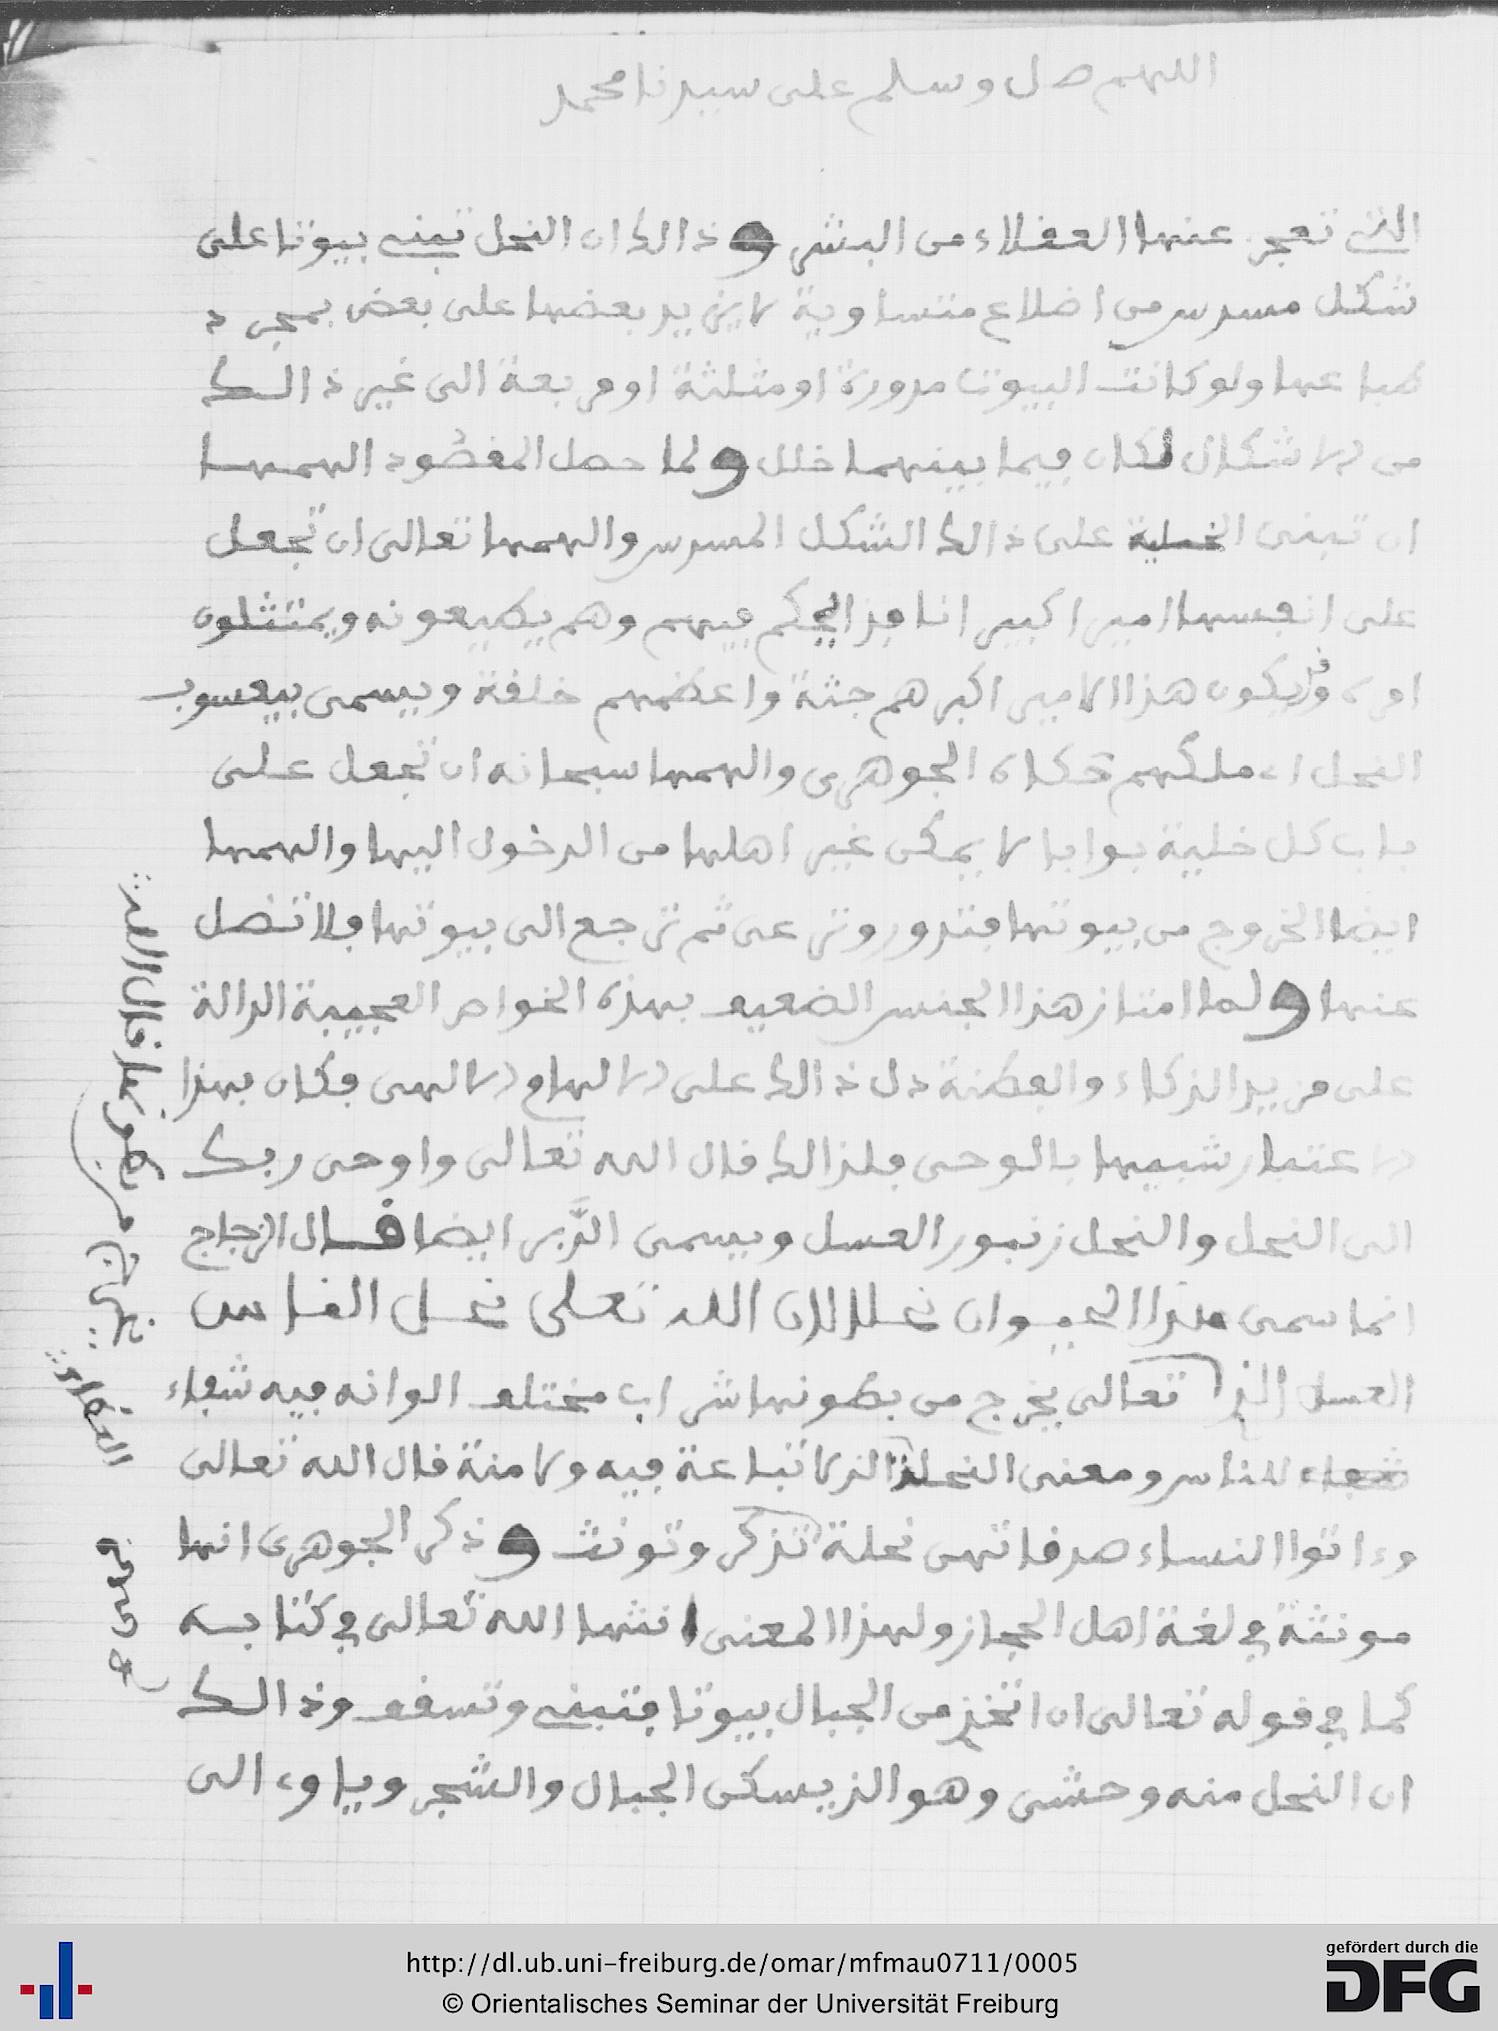 اللهم صل وسلم على سيدنا محمد
التي تعجز عنها العقلاء من البشر وذالك ان النحل تبني بيوتا على
شكل مسدس من اضلاع متساوية لا يزيد بعضها على بعض بمجرد
طباعها ولو كانت البيوت مدورة او مثلثة او مربعة الى غير ذالك
من الاشكال لكان فيما بينهما خلل ولما حصل المقصود الهمها
ان تبنى الخلية على ذالك الشكل المسدس والهمها تعالى ان تجعل
على انفسها اميرا كبيرا نافذ الحكم فيهم وهم يطيعونه ويمتثلون
امره وقد يكون هذا الامير اكبرهم جثة واعظمهم خلقة ويسمى بيعسوب
النحل اي ملكهم حكاه الجوهرى والهمها سبحانه ان تجعل على
باب كل خلية بوابا لا يمكن غير اهلها من الدخول اليها والهمها
ايضا الخروج من بيوتها فتدور وترعى ثم ترجع الى بيوتها فلا تضل
عنها ولما امتاز هذا الجنس الضعيف بهذه الخواص العجيبة الدالة
على مزيد الذكاء والفطنة دل ذالك على الالهام الالهى فكان بهذا
الاعتبار شبيها بالوحى فلذالك قال الله تعالى واوحى ربك
الى النحل والنحل زنبور العسل ويسمى الدَّبر ايضا قال الزجاج
انما سمى هذا الحيوان نحلا لان الله تعلى نحل الناس
العسل الذي تعالى يخرج من بطونها شراب مختلف الوانه فيه شفاء
شفاء للناس ومعنى النحلة الذي لا تباعة فيه ولا منة قال الله تعالى
وءاتوا النساء صدقاتهن نحلة تذكر وتونث وذكر الجوهرى انها
مونثة في لغة اهل الحجاز ولهذا المعنى انثها الله تعالى في كتابه
كما في قوله تعالى ان اتخذي من الجبال بيوتا فتبني وتسقف وذالك
ان النحل منه وحشى وهو الذي يسكن الجبال والشجر وياوي الى
يخرج من بطونها قال الله